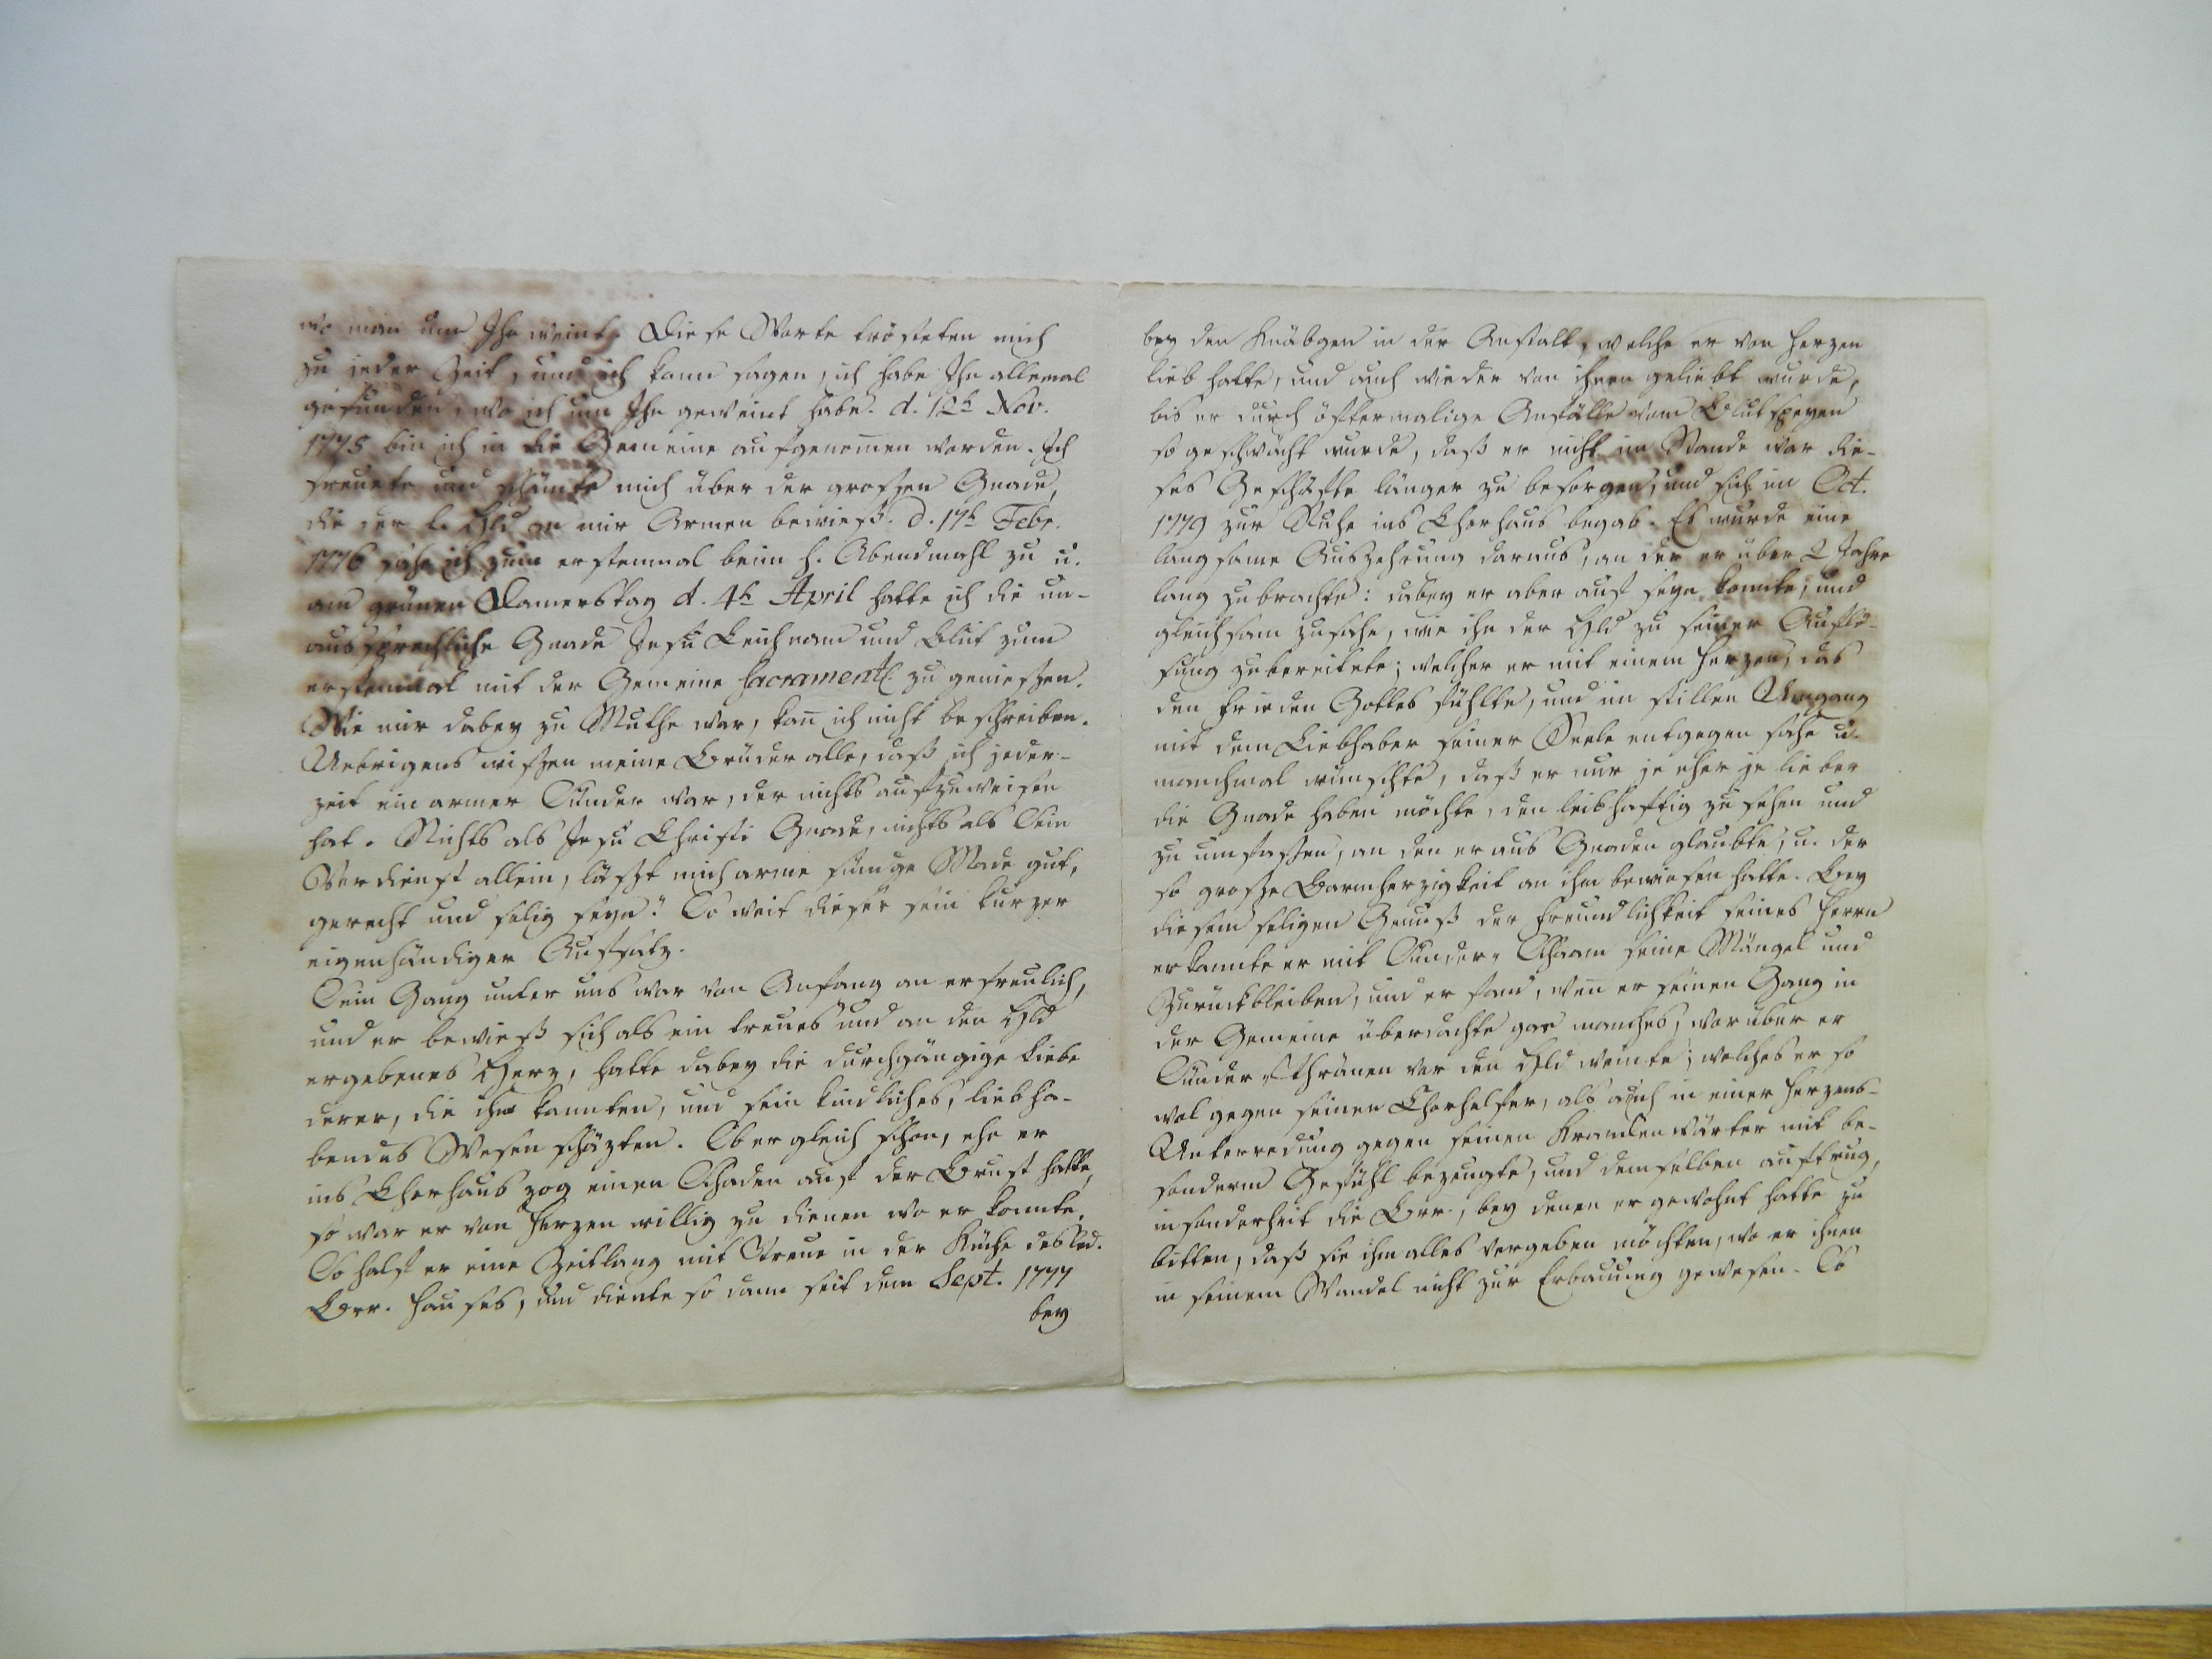 wo man um Ihn weint. Diese Worte trösteten mich
zu jeder Zeit, und ich kann sagen, ich habe Ihn allemal
gefunden, wo ich um Ihn geweint habe. d. 12t Nov.
1775 bin ich in die Gemeine aufgenom̅en worden. Ich
freuete und schämte mich über der grossen Gnade,
die der l. Hld an mir Armen bewieß. d. 17t Febr.
1776 sahe ich zum erstenmal beim h. Abendmahl zu u.
am grünen Donnerstag d. 4t April hatte ich die un-
aussprechliche Gnade Jesu Leichnam und Blut zum
erstenmal mit der Gemeine sacramentl. zu geniessen.
Wie mir dabey zu Muthe war, kan̅ ich nicht beschreiben.
Uebrigens wissen meine Brüder alle, daß ich jeder-
zeit ein armer Sünder war, der nichts aufzuweisen
hat. Nichts als Jesu Christi Gnade, nichts als Sein
Verdienst allein, lässt mich arme sündge Made gut,
gerecht und selig seyn." So weit dieser sein kurzer
eigenhändiger Aufsatz.
Sein Gang unter uns war von Anfang an erfreulich,
und er bewieß sich als ein treues und an den Hld
ergebenes Herz, hatte dabey die durchgängige Liebe
derer, die ihn kannten, und sein kindliches, liebha-
bendes Wesen schäzten. Ob er gleich schon, ehe er
ins Chorhaus zog einen Schaden auf der Brust hatte,
so war er von Herzen willig zu dienen wo er konnte.
So half er eine Zeitlang mit Treue in der Küche des led.
Brr. Hauses, und diente so dann seit dem Sept. 1777
bey
bey den Knäbgen in der Anstalt, welche er von Herzen
lieb hatte, und auch wieder von ihnen geliebt wurde,
bis er durch öftermalige Anfälle vom Blutspeyen
so geschwächt wurde, daß er nicht im Stande war die-
ses Geschäfte länger zu besorgen, und sich im Oct.
1779 zur Ruhe ins Chorhaus begab. Es wurde eine
langsame Auszehrung daraus, an der er über 2 Jahre
lang zubrachte: dabey er aber auf seyn konnte, und
gleichsam zusahe, wie ihn der Hld zu seiner Auflö-
sung zubereitete; welcher er mit einem Herzen, das
den Frieden Gottes fühlte, und im stillen Umgang
mit dem Liebhaber seiner Seele entgegen sahe u.
manchmal wünschte, daß er nur je eher je lieber
die Gnade haben möchte, den leibhaftig zu sehen und
zu umfassen, an den er aus Gnaden glaubte, u. der
so grosse Barmherzigkeit an ihm bewiesen hatte. Bey
diesem seligen Genuß der Freundlichkeit seines Herrn
erkannte er mit Sünder-Schaam seine Mängel und
Zurückbleiben, und er fand, wen̅ er seinen Gang in
der Gemeine überdachte gar manches, worüber er
Sünder-Thränen vor den Hld weinte; welches er so
wol gegen seinen Chorhelfer, als auch in einer Herzens-
Unterredung gegen seinen Krankenwärter mit be-
sonderm Gefühl bezeugte, und demselben auftrug,
insonderheit die Brr., bey denen er gewohnt hatte zu
bitten, daß sie ihm alles vergeben möchten, wo er ihnen
in seinem Wandel nicht zur Erbauung gewesen. So